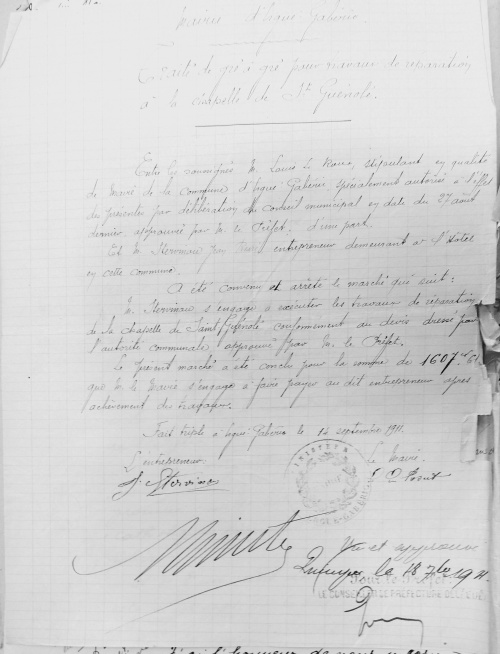 Mairie d'Ergué-Gabéric
Traité de gré à gré pour travaux de réparation
à la chapelle de St Guénolé.
Entre les soussignés M. Louis Le Roux, stipulant en qualité
de Maire de la commune d'Ergué-Gabéric spécialement autorisé à l'effet
du présentes par délibération du conseil municipal en date du 27 août
dernier approuvée par M. le Préfet, d'une part.
Et M. Hervineau entrepreneur demeurant à
en cette commune.
A été convenu et arrêté le marché qui suit :
M. Hervineau s'engage à exécuter les travaux de réparation
de la chapelle de Saint Guénolé conformément au devis dressé par
l'autorité communale, approuvé par M. le Préfet.
Le présent marché a été conclu pour la somme de 1607
que M. le Maire s'engage à faire payer au dit entrepreneur après
achèvement des travaux.
Fait triple à Ergué-Gabéric le 14 septembre 1911.
L'entrepreneur Le Maire
Minute
Vu et approuvé
Quimper le 18 7bre 1911
Pour le Préfet
LE CONSEILLER DE PRÉFECTURE DÉLÉGUÉ